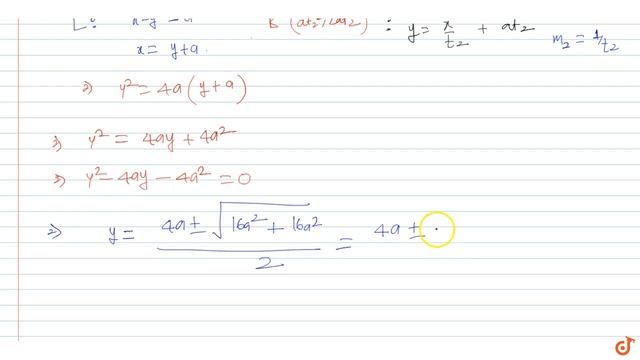 L: x-y = a B (at₂², 2at₂) : y = x/t₂ + at₂ m₂ = 1/t₂
x = y+a.
⇒ y² = 4a (y+a)
⇒ y² = 4ay + 4a²
⇒ y² - 4ay - 4a² = 0
⇒ y = (4a ± √(16a² + 16a²))/2 = 4a ±